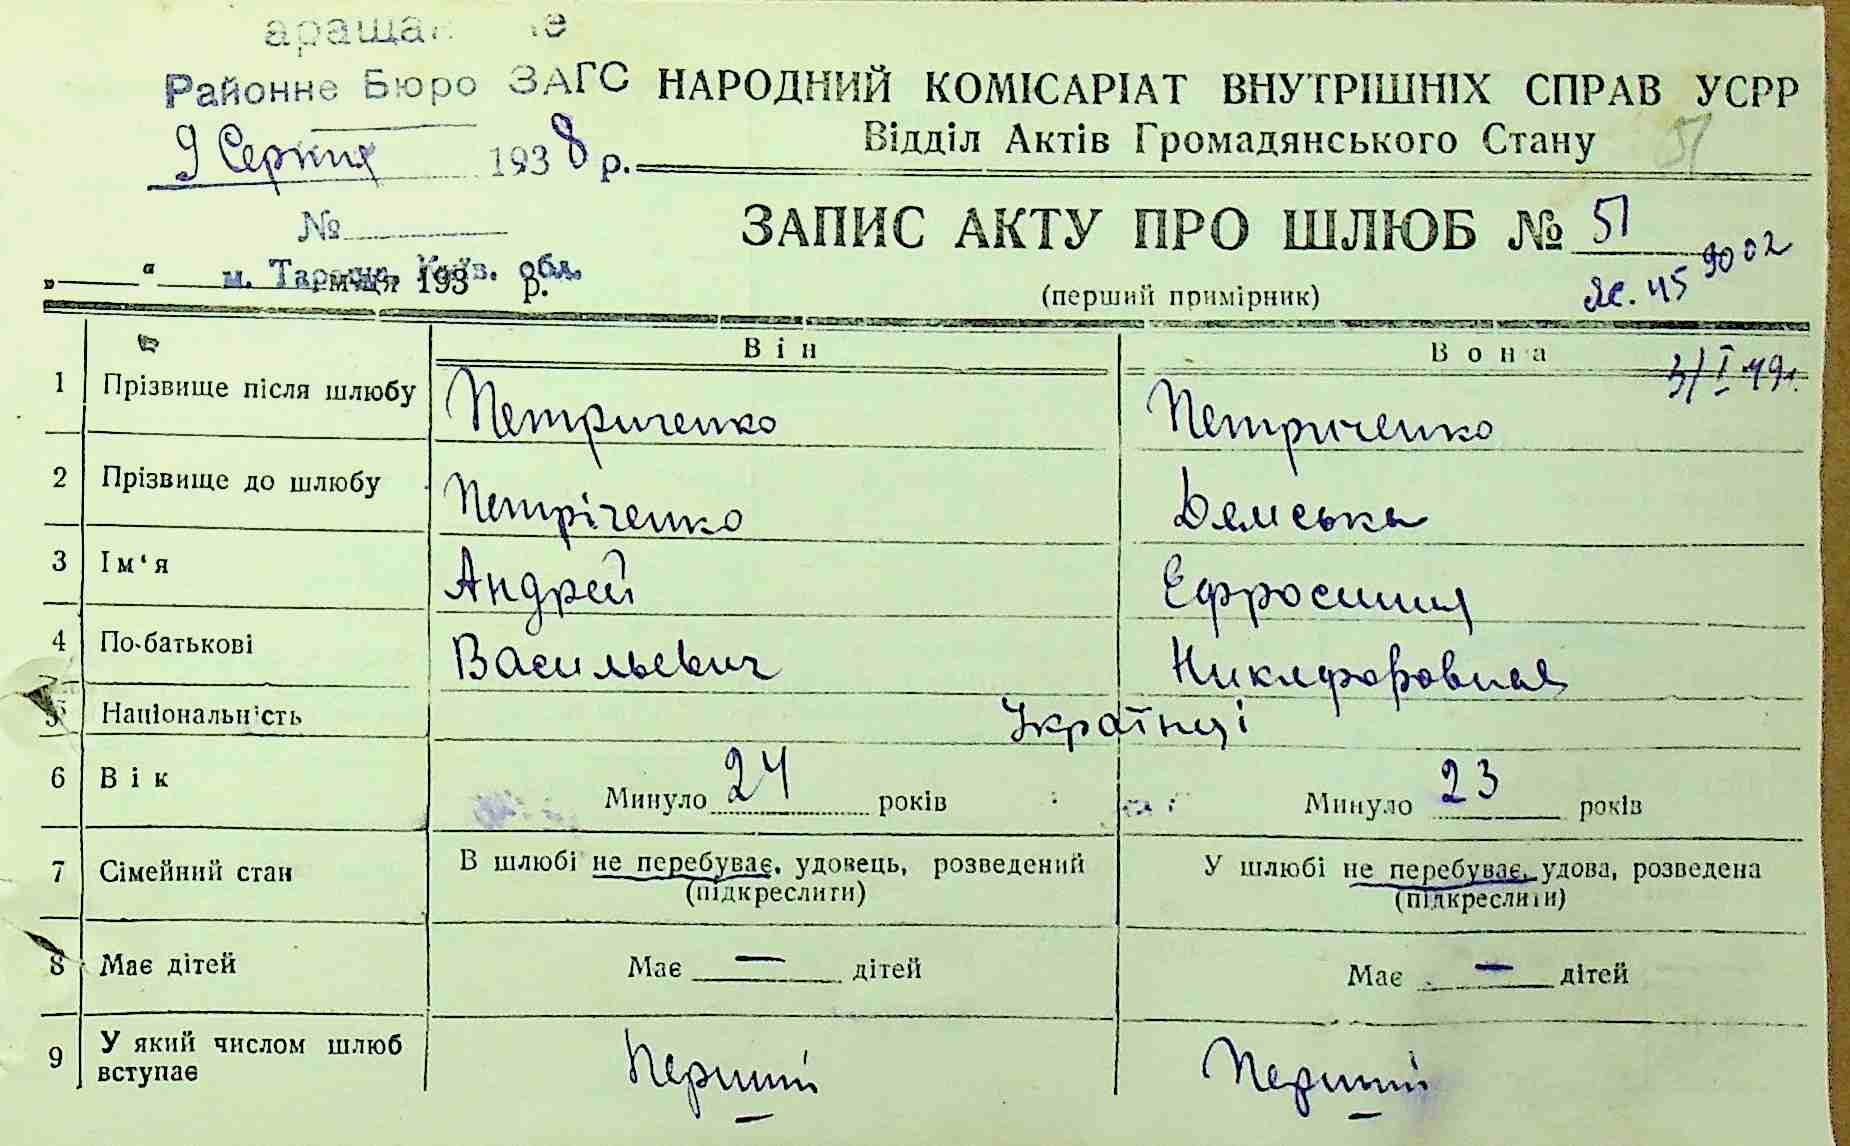 Районне Бюро ЗАГС
9 Серпня 1938 р.
№
м. Тараща, Київ. обл.
„ “ місяця 193 р.
НАРОДНИЙ КОМІСАРІАТ ВНУТРІШНІХ СПРАВ УСРР
Відділ Актів Громадянського Стану
51
ЗАПИС АКТУ ПРО ШЛЮБ № 51
(перший примірник)
Він Вона
1 Прізвище після шлюбу Петриченко Петриченко
2 Прізвище до шлюбу Петріченко
3 Ім‘я Андрей Ефросиния
4 По-батькові Васильевич
5 Національність Українці
6 Вік Минуло 24 років Минуло 23 років
7 Сімейний стан В шлюбі не перебуває, удовець, розведений У шлюбі не перебуває, удова, розведена
(підкреслити) (підкреслити)
8 Має дітей Має — дітей Має — дітей
9 У який числом шлюб
вступає Перший Перший